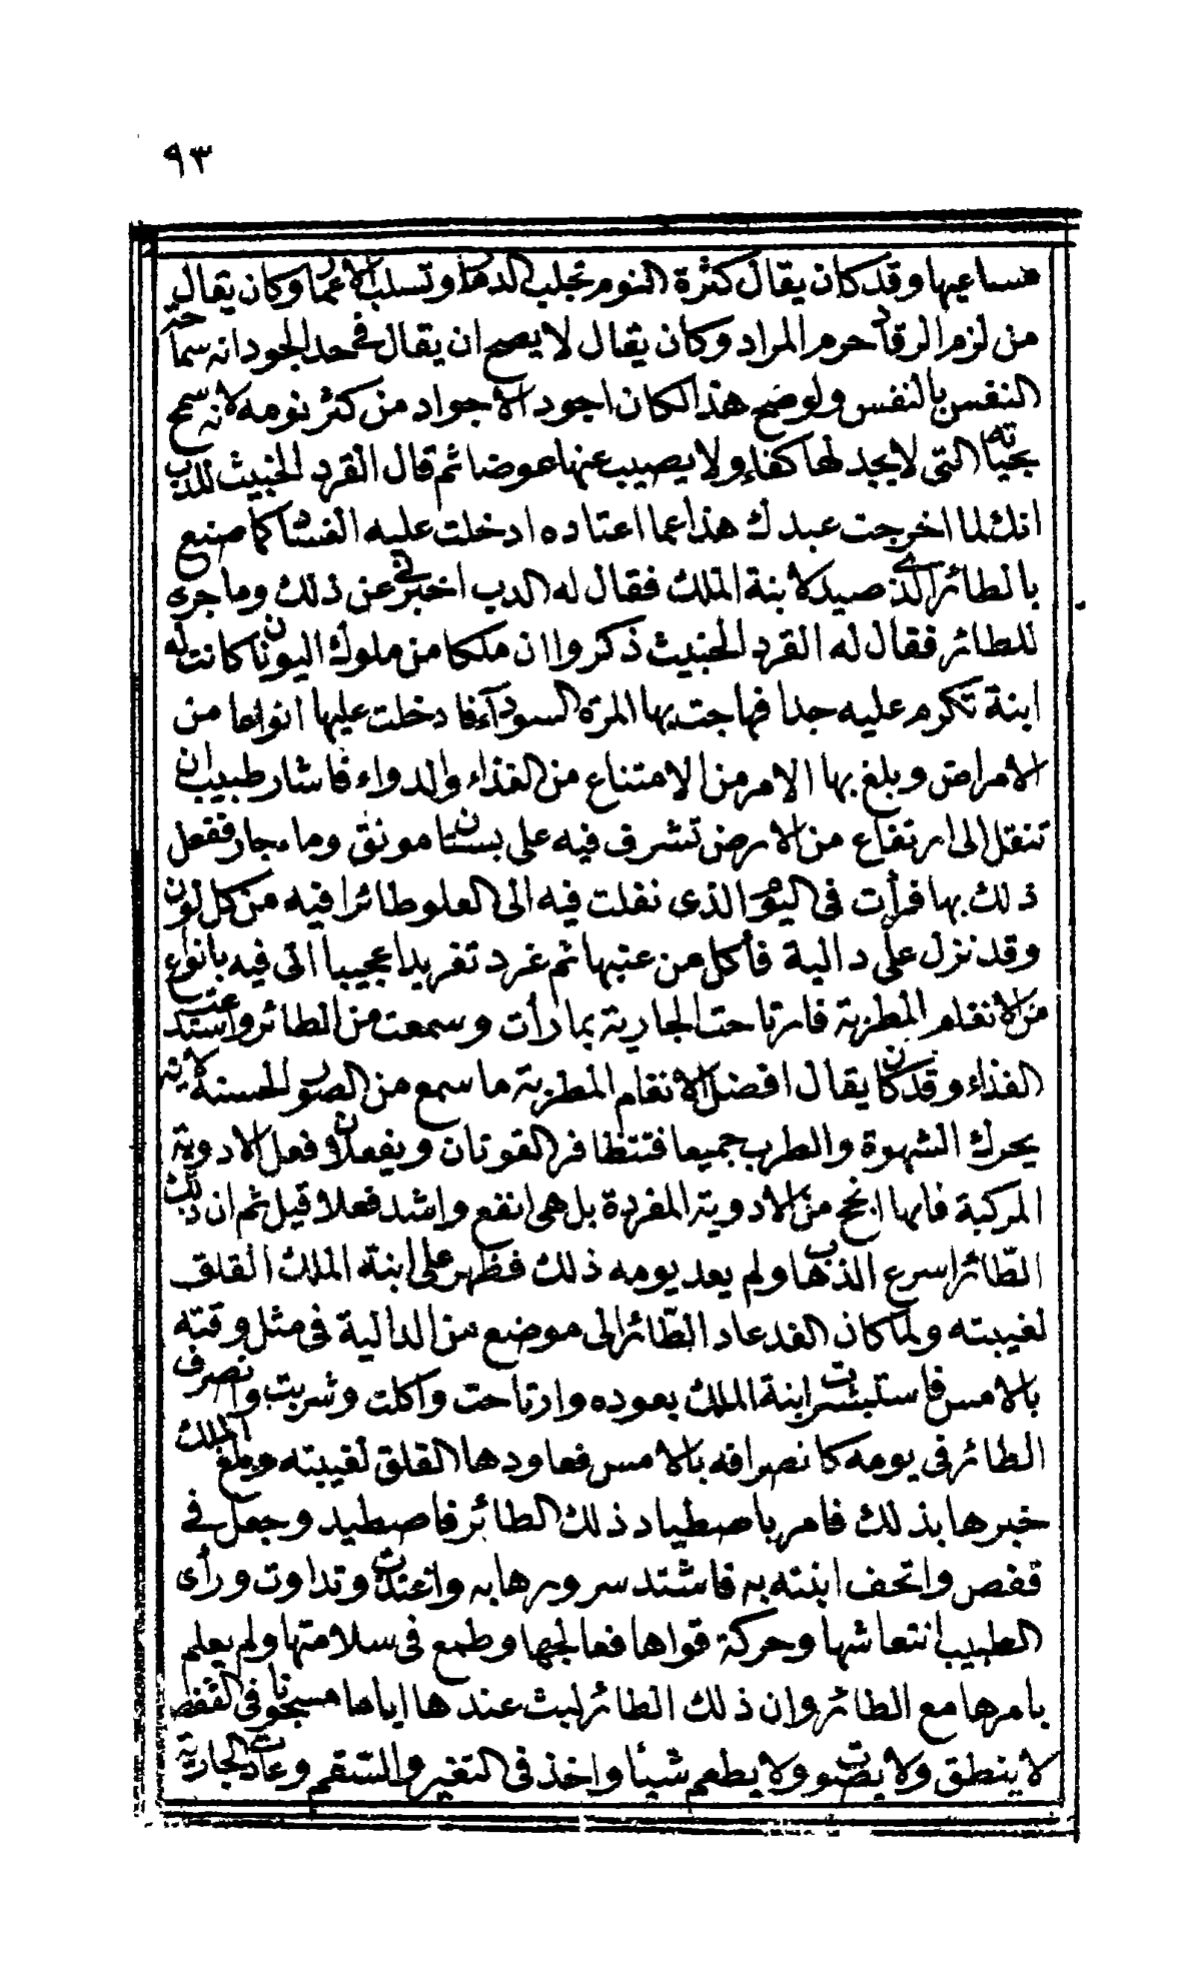 ٩٣
مساعيها وقد كان يقال كثرة النوم تجلب الدمار وتسلب الاعمار وكان يقال
من لزم الرقاد حرم المراد وكان يقال لا يصح ان يقال في حد الجود انه سماحة
النفس بالنفس ولو صح هذا لكان اجود الاجواد من كثر نومه لانه سمح
بحياته التي لا يجد لها كفاء ولا يصيب عنها عوضا ثم قال القرد الخبيث للدب
انك لما اخرجت عبدك هذا عما اعتاده ادخلت عليه الفساد كما صنع
بالطائر الذي صيد لابنة الملك فقال له الدب اخبرني عن ذلك وما جرى
للطائر فقال له القرد الخبيث ذكروا ان ملكا من ملوك اليونان كانت له
ابنة تكرم عليه جدا فهاجت بها المرة السوداء فادخلت عليها انواعا من
الامراض وبلغ بها الامر من الامتناع من الغذاء والدواء فاشار طبيب ان
تنقل الى ارتفاع من الارض تشرف فيه على بستان مونق وماء جار ففعل
ذلك بها فرأت في اليوم الذى نقلت فيه الى العلو طائرا فيه من كل لون
وقد نزل على دالية فأكل من عنبها ثم غرد تغريدا عجيبا اتى فيه بانواع
من الانغام المطربة فارتاحت الجارية بما رأت وسمعت من الطائر واستدعت
الغذاء وقد كان يقال افضل الانغام المطربة ما سمع من الصور الحسنة لانه
يحرك الشهوة والطرب جميعا فتتظافر القوتان ويفعلان فعل الادوية
المركبة فانها انجح من الادوية المفردة بل هى انفع واشد فعلا قيل ثم ان ذلك
الطائر اسرع الذهاب ولم يعد يومه ذلك فظهر على ابنة الملك القلق
لغيبته ولما كان الغد عاد الطائر الى موضع من الدالية في مثل وقته
بالامس فاستبشرت ابنة الملك بعوده وارتاحت واكلت وشربت وانصرف
الطائر في يومه كانصرافه بالامس فعاودها القلق لغيبته وبلغ الملك
خبرها بذلك فامر باصطياد ذلك الطائر فاصطيد وجعل في
قفص واتحف ابنته به فاشتد سرورها به واغتذت وتداوت ورأى
الطبيب انتعاشها وحركة قواها فعالجها وطمع في سلامتها ولم يعلم
بامرها مع الطائر وان ذلك الطائر لبث عندها اياما مسجونا في القفص
لا ينطق ولا يصوت ولا يطعم شيئا واخذ في التغير والسقم وعادت الجارية